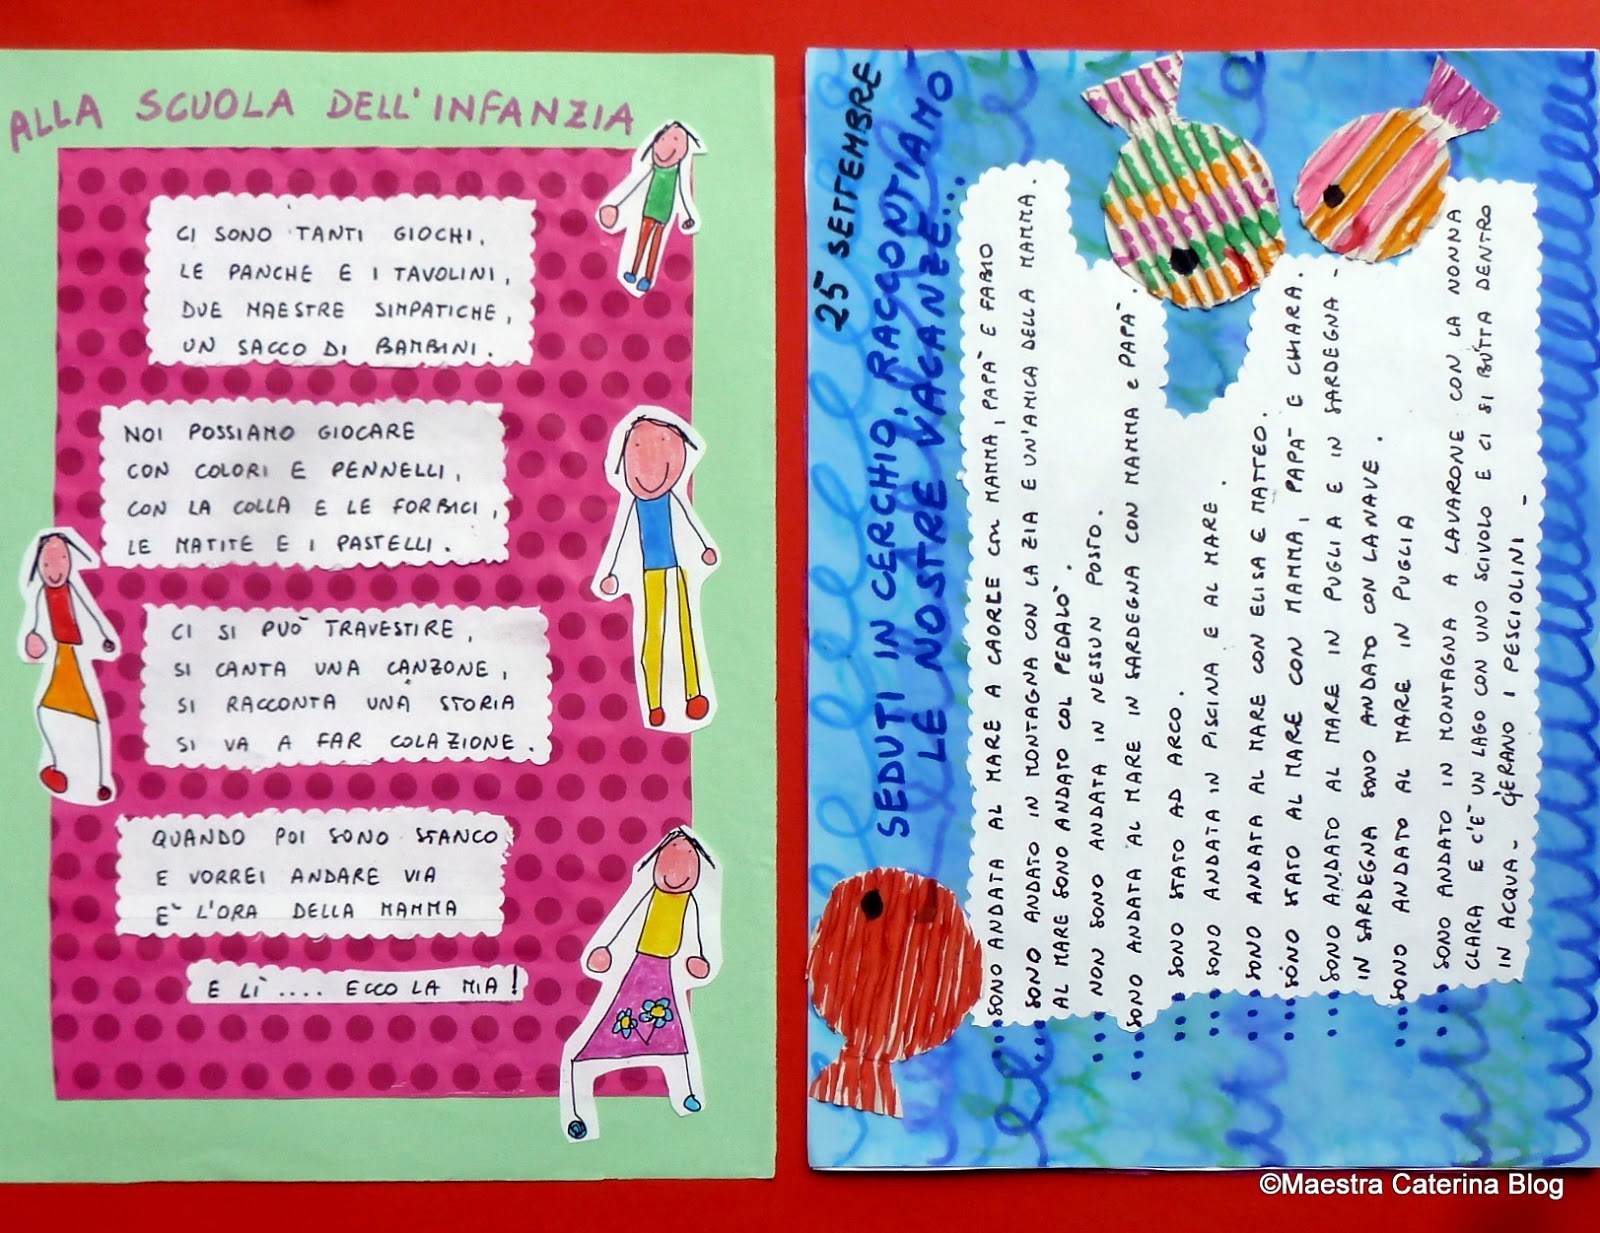 ALLA SCUOLA DELL'INFANZIA
CI SONO TANTI GIOCHI,
LE PANCHE E I TAVOLINI,
DUE MAESTRE SIMPATICHE,
UN SACCO DI BAMBINI.
NOI POSSIAMO GIOCARE
CON COLORI E PENNELLI,
CON LA COLLA E LE FORBICI,
LE MATITE E I PASTELLI.
CI SI PUÒ TRAVESTIRE,
SI CANTA UNA CANZONE,
SI RACCONTA UNA STORIA
SI VA A FAR COLAZIONE.
QUANDO POI SONO STANCO
E VORREI ANDARE VIA
È L'ORA DELLA MAMMA
E LÌ.... ECCO LA MIA!
25 SETTEMBRE
SEDUTI IN CERCHIO, RACCONTIAMO
LE NOSTRE VACANZE...
...SONO ANDATA AL MARE A CAORLE CON MAMMA, PAPÀ E FABIO
...SONO ANDATO IN MONTAGNA CON LA ZIA E UN'AMICA DELLA MAMMA.
AL MARE SONO ANDATO COL PEDALÒ.
...NON SONO ANDATA IN NESSUN POSTO.
...SONO ANDATA AL MARE IN SARDEGNA CON MAMMA e PAPÀ.
...SONO STATO AD ARCO.
...SONO ANDATA IN PISCINA E AL MARE.
...SONO ANDATA AL MARE CON ELISA E MATTEO.
...SONO STATO AL MARE CON MAMMA, PAPÀ E CHIARA.
...SONO ANDATO AL MARE IN PUGLIA E IN SARDEGNA -
IN SARDEGNA SONO ANDATO CON LA NAVE.
...SONO ANDATO AL MARE IN PUGLIA
...SONO ANDATO IN MONTAGNA A LAVARONE CON LA NONNA
CLARA E C'È UN LAGO CON UNO SCIVOLO E CI SI BUTTA DENTRO
IN ACQUA - C'ERANO I PESCIOLINI -
©Maestra Caterina Blog